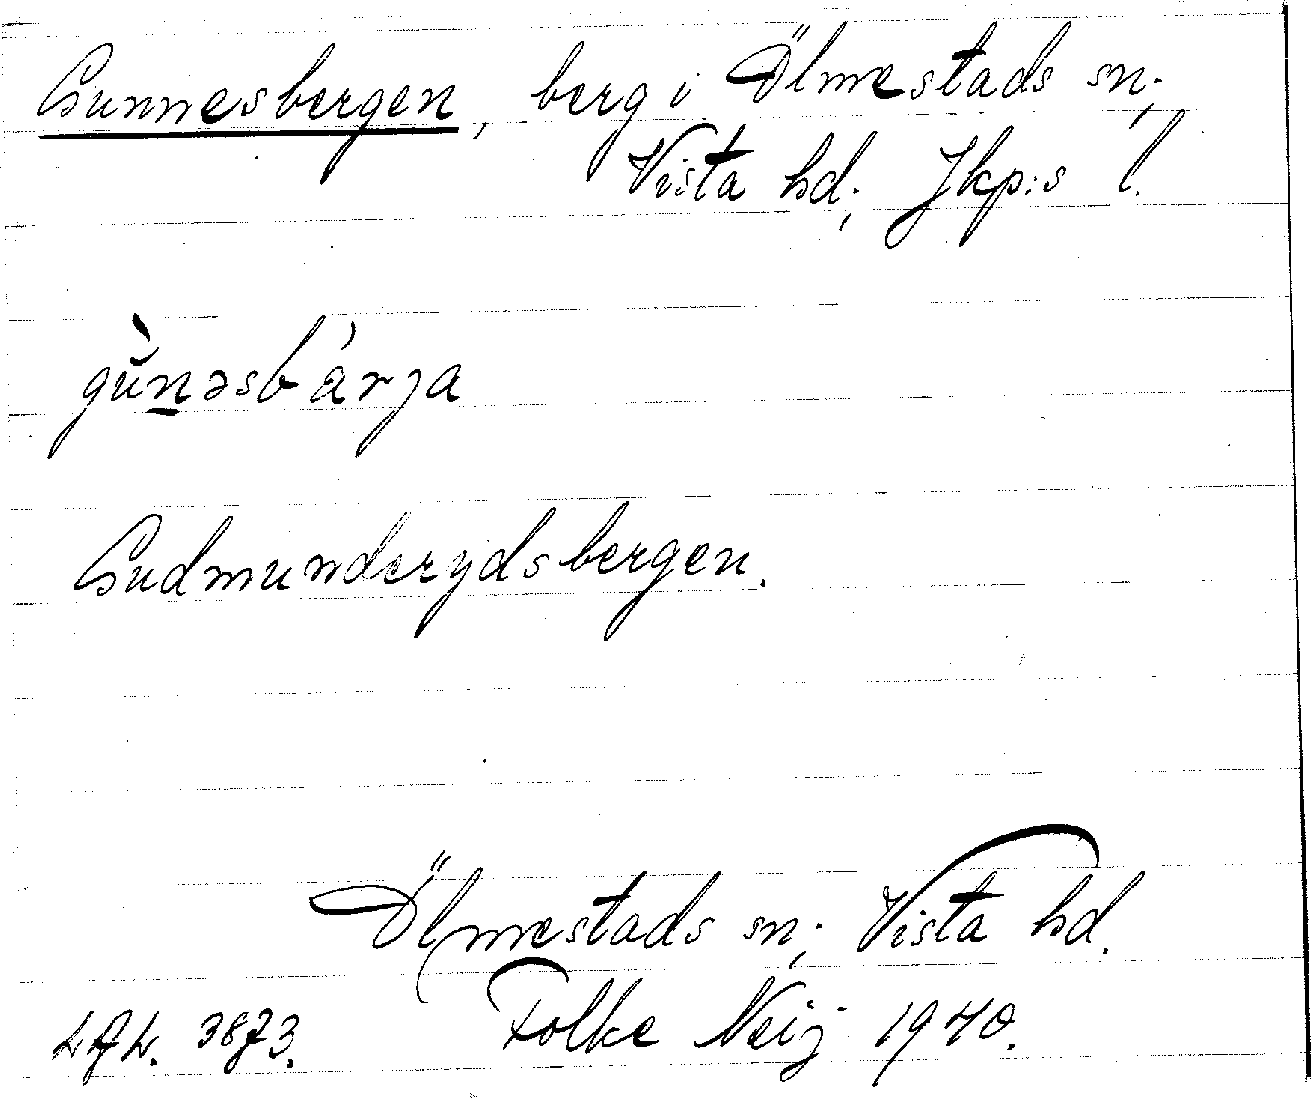 Gunnesbergen, berg i Ölmestads sn;
Vista hd; Jkp:s l.
gùnəsbárja
Gudmunderydsbergen.
Ölmestads sn; Vista hd.
Folke Neij 1940.
3873.